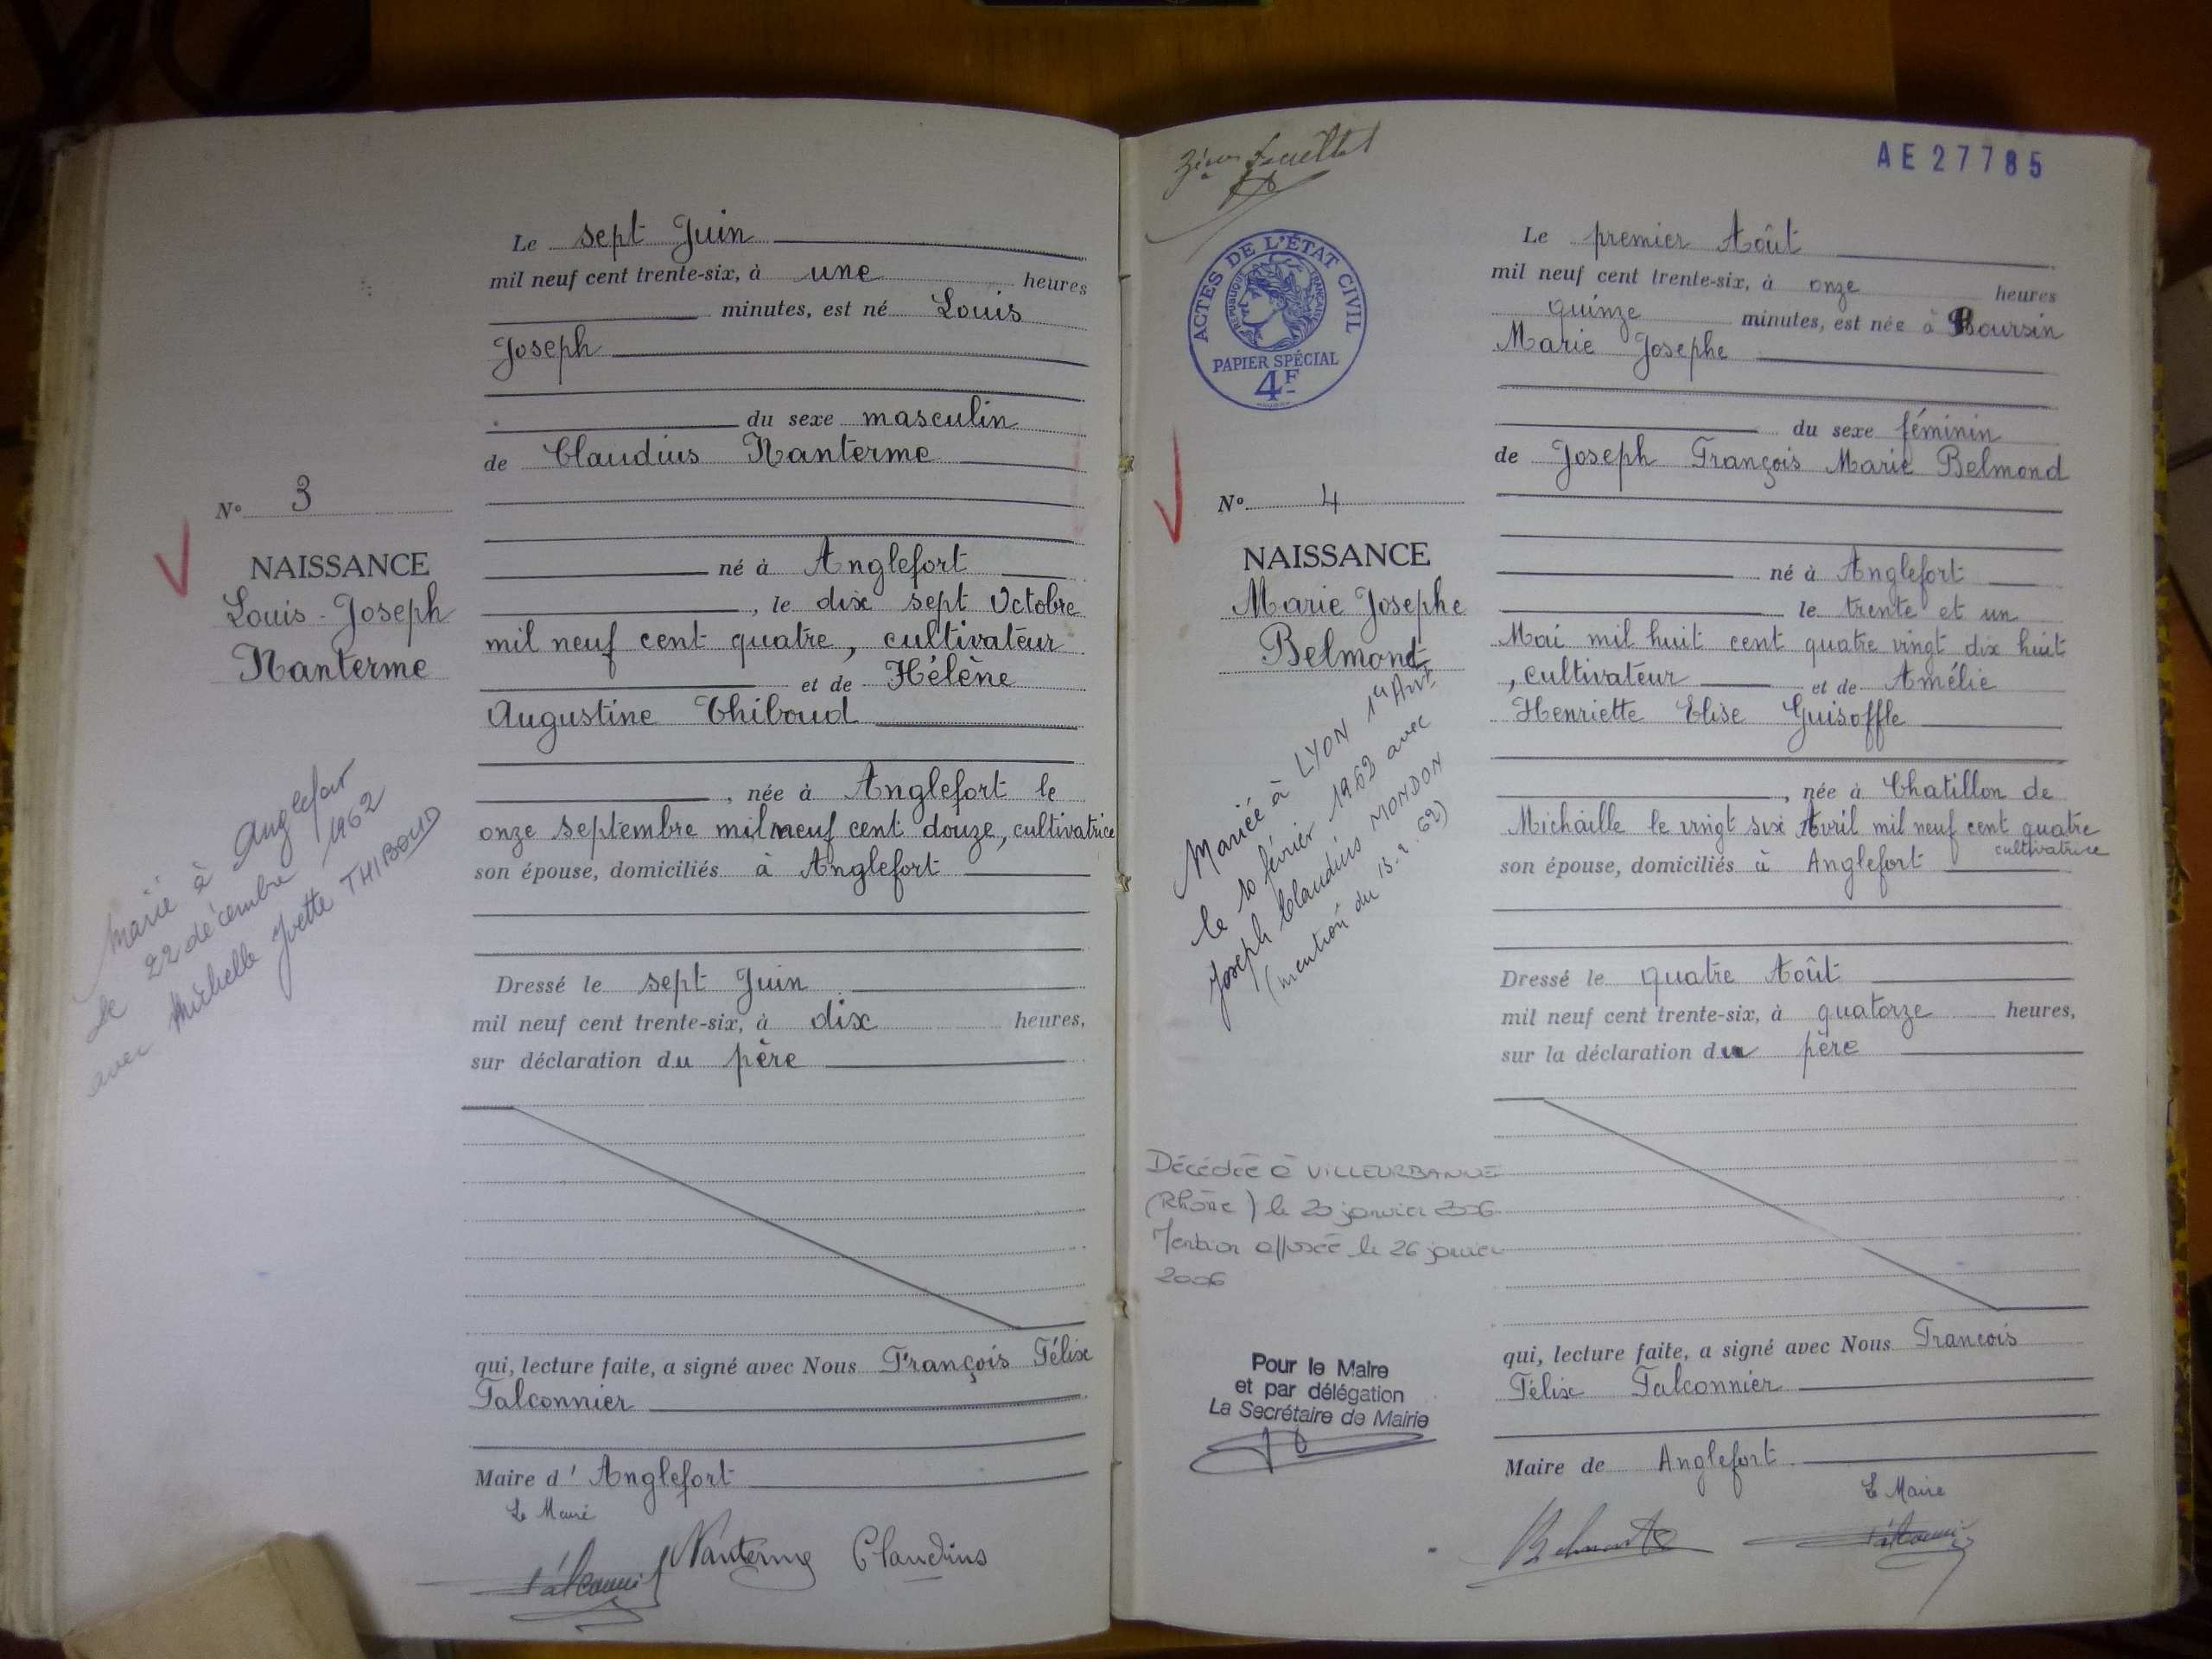 Le sept Juin
mil neuf cent trente-six, à une heures
minutes, est né Louis
Joseph
du sexe masculin
de Claudius Nanterme
né à Anglefort
, le dix sept Octobre
mil neuf cent quatre, cultivateur
et de Hélène
Augustine Thiboud
, née à Anglefort le
onze septembre mil neuf cent douze, cultivatrice
son épouse, domiciliés à Anglefort
Dressé le sept Juin
mil neuf cent trente-six, à dix heures,
sur déclaration du père
qui, lecture faite, a signé avec Nous François Félix
Falconnier
Maire d' Anglefort
Le Maire
Nanterme Claudius
N° 3
NAISSANCE
Louis-Joseph
Nanterme
Marié à Anglefort
le 22 décembre 1962
avec Michelle Yvette THIBOUD
AE27785
3ième feuillet
ACTES DE L'ÉTAT CIVIL
RÉPUBLIQUE FRANÇAISE
PAPIER SPÉCIAL
4F
Le premier Août
mil neuf cent trente-six, à onze heures
quinze minutes, est née à Boursin
Marie Josephe
du sexe féminin
de Joseph François Marie Belmond
né à Anglefort
le trente et un
Mai mil huit cent quatre vingt dix huit
, cultivateur , et de Amélie
Henriette Elise Guisoffle
, née à Chatillon de
Michaille le vingt six Avril mil neuf cent quatre
cultivatrice
son épouse, domiciliés à Anglefort
Dressé le quatre Août
mil neuf cent trente-six, à quatorze heures,
sur la déclaration du père
qui, lecture faite, a signé avec Nous Francois
Félix Falconnier
Maire de Anglefort
Le Maire
N° 4
NAISSANCE
Marie Josephe
Belmond
Mariée à LYON 1er Arrt
le 10 février 1962 avec
Joseph Claudius MONDON
(mention du 13.2.62)
Décédée à VILLEURBANNE
(Rhône) le 20 janvier 2006
Mention apposée le 26 janvier
2006
Pour le Maire
et par délégation
La Secrétaire de Mairie